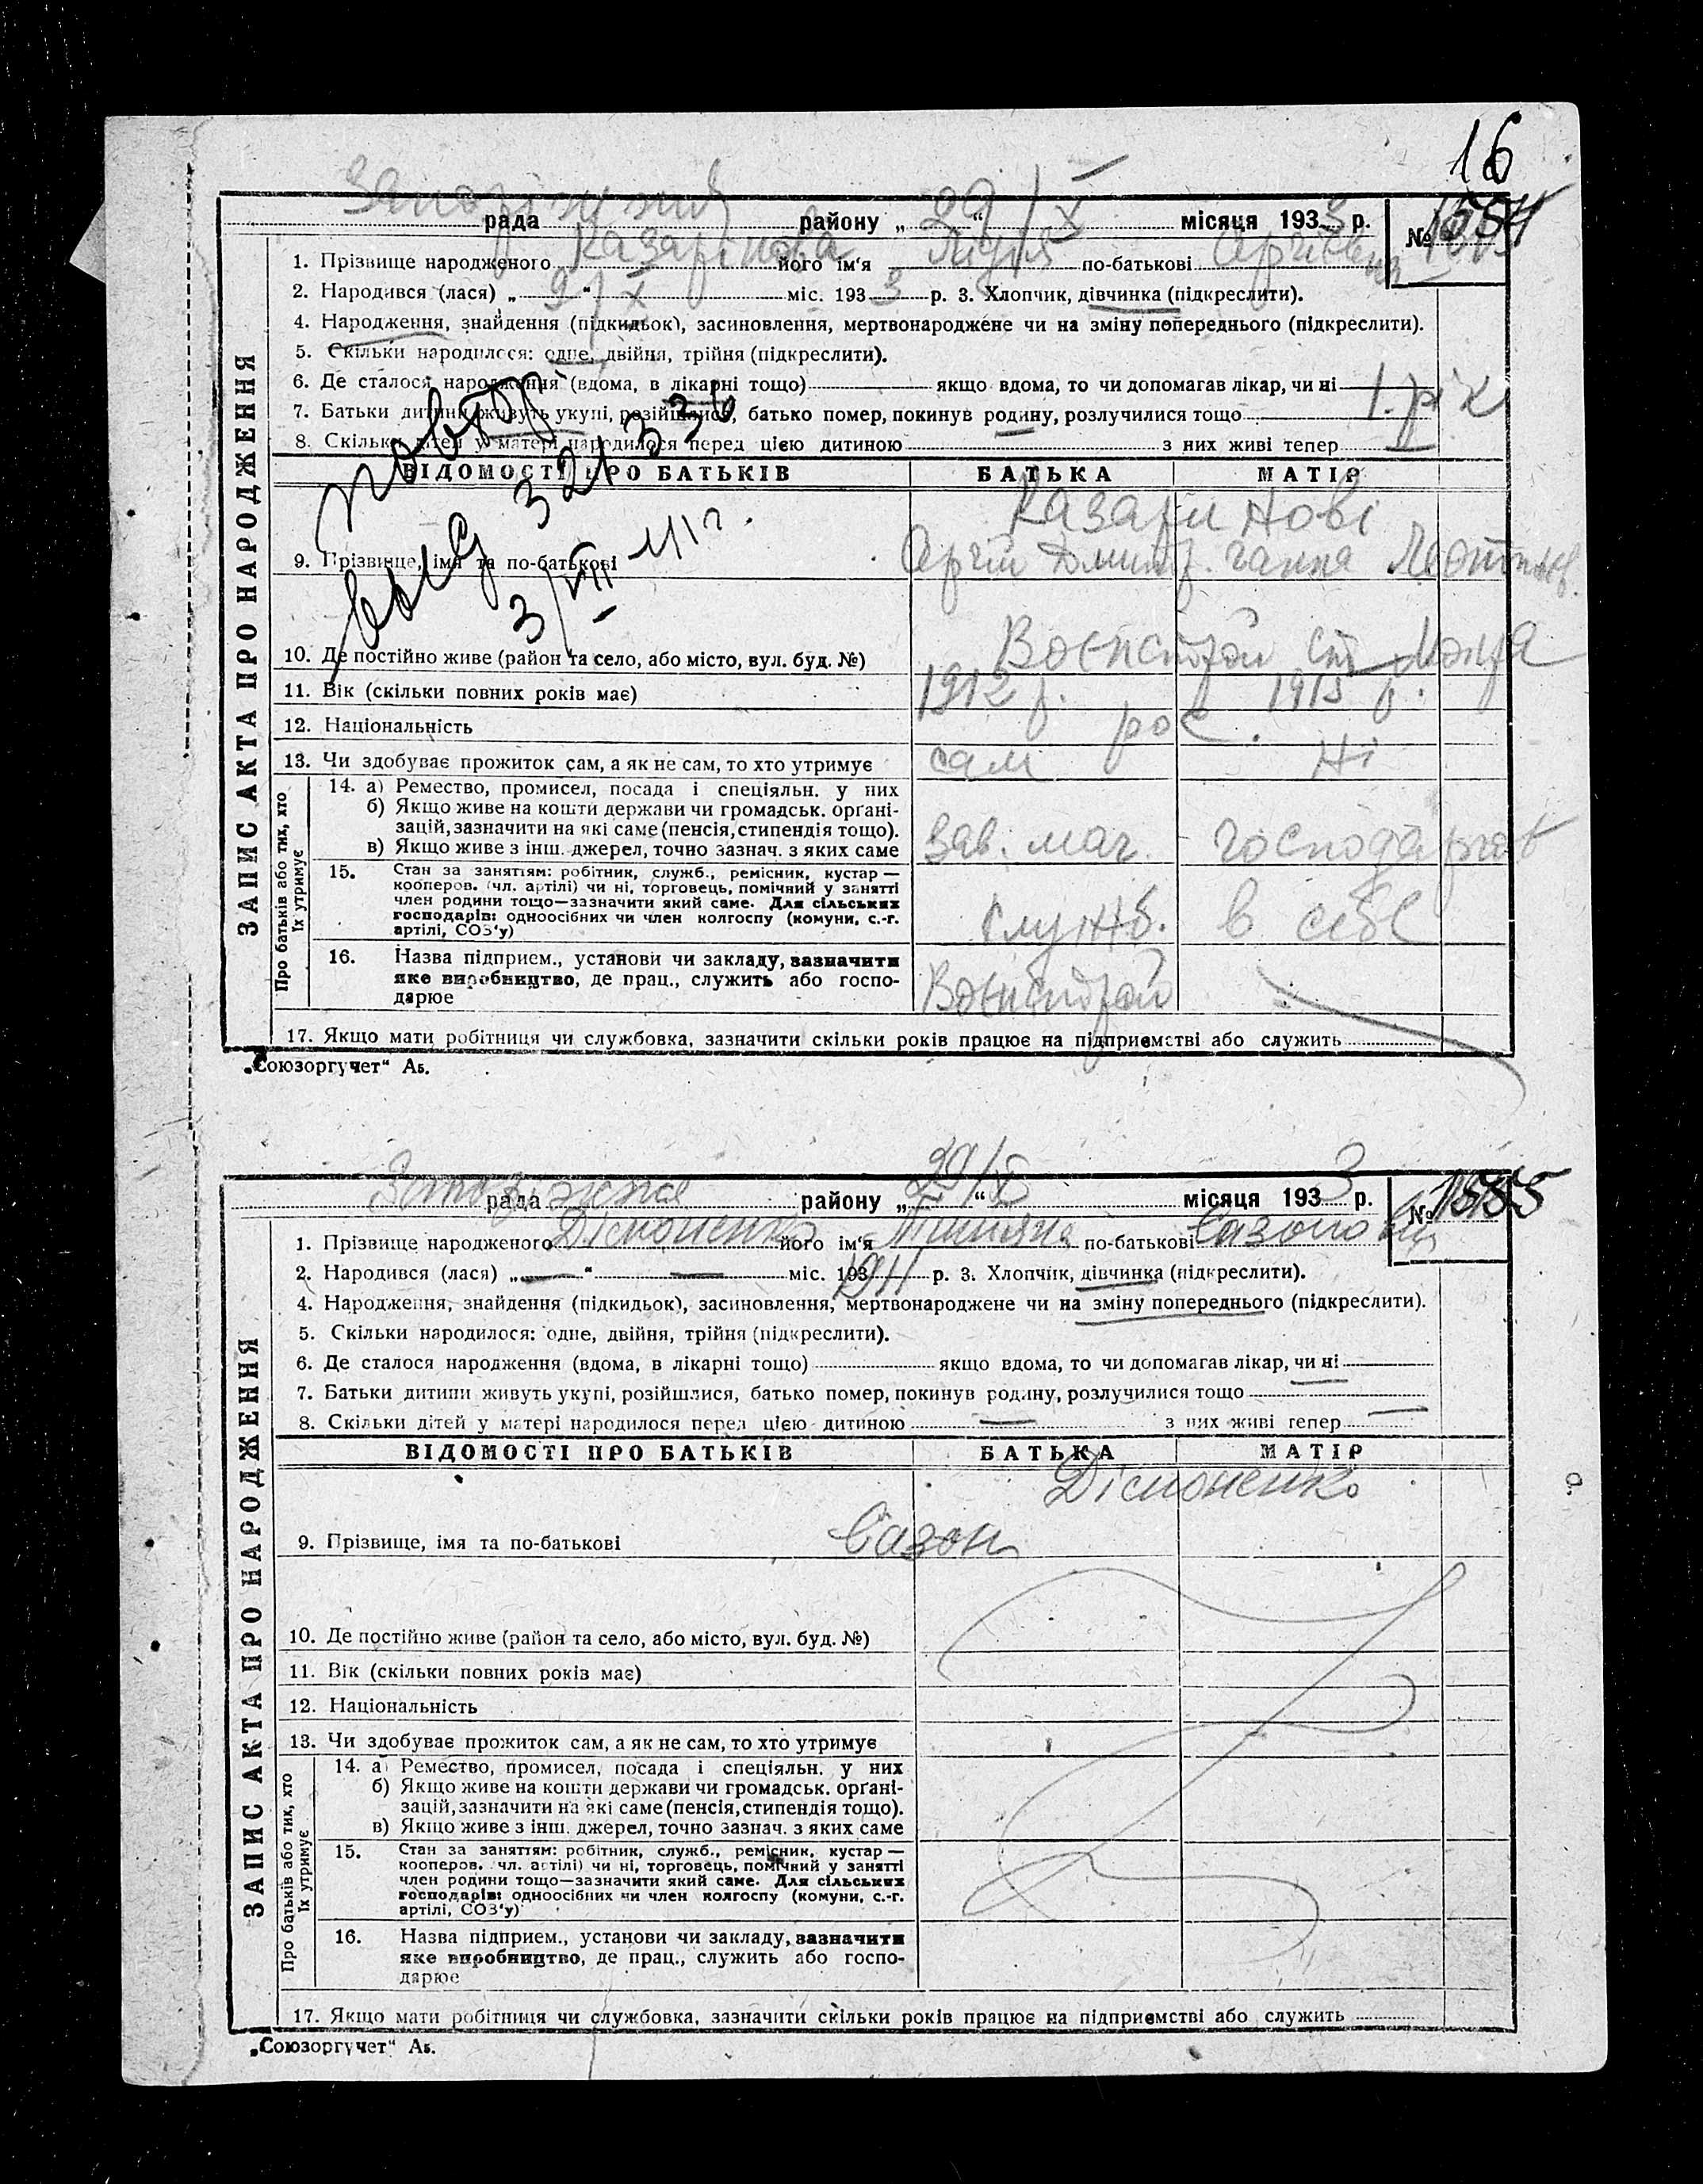 16
рада району „ 29 “ X місяця 1933 р. № 1554
1. Прізвище народженого Казарінова його ім'я Лідія по-батькові
2. Народився (лася) „ 9 “ X міс. 1933 р. 3. Хлопчик, дівчинка (підкреслити).
4. Народження, знайдення (підкидьок), засиновлення, мертвонароджене чи на зміну попереднього (підкреслити).
5. Скільки народилося: одне, двійня, трійня (підкреслити).
6. Де сталося народження (вдома, в лікарні тощо) якщо вдома, то чи допомагав лікар, чи ні
7. Батьки дитини живуть укупі, розійшлися, батько помер, покинув родину, розлучилися тощо 1. рік
8. Скільки дітей у матері народилося перед цією дитиною з них живі тепер
ЗАПИС АКТА ПРО НАРОДЖЕННЯ
ВІДОМОСТІ ПРО БАТЬКІВ БАТЬКА МАТІР
Казарінові
9. Прізвище, імя та по-батькові Сергій Дмитр. Ганна
10. Де постійно живе (район та село, або місто, вул. буд. №) Воєнстрой
11. Вік (скільки повних років має) 1912 р. 1915 р.
12. Національність рос.
13. Чи здобуває прожиток сам, а як не сам, то хто утримує сам ні
Про батьків або тих, хто їх утримує
14. а) Ремество, промисел, посада і спеціяльн. у них
б) Якщо живе на кошти держави чи громадськ. органі-
зацій, зазначити на які саме (пенсія, стипендія тощо).
в) Якщо живе з інш. джерел, точно зазнач. з яких саме Зав. маг.
15. Стан за заняттям: робітник, служб., ремісник, кустар —
кооперов. (чл. артілі) чи ні, торговець, помічний у занятті
член родини тощо—зазначити який саме. Для сільських
господарів: одноосібних чи член колгоспу (комуни, с.-г.
артілі, СОЗ'у) служб. в себе
16. Назва підприєм., установи чи закладу, зазначити
яке виробництво, де прац., служить або госпо-
дарює Воєнстрой
17. Якщо мати робітниця чи службовка, зазначити скільки років працює на підприємстві або служить
„Союзоргучет“ А5.
повтор
выд 321336
3/VIII-41 г.
рада району „ 29 “ X місяця 1933 р. № 1555
1. Прізвище народженого Дісмоненко його ім'я Тетяна по-батькові Сазоно
2. Народився (лася) „ — “ — міс. 1911 р. 3. Хлопчик, дівчинка (підкреслити).
4. Народження, знайдення (підкидьок), засиновлення, мертвонароджене чи на зміну попереднього (підкреслити).
5. Скільки народилося: одне, двійня, трійня (підкреслити).
6. Де сталося народження (вдома, в лікарні тощо) якщо вдома, то чи допомагав лікар, чи ні
7. Батьки дитини живуть укупі, розійшлися, батько помер, покинув родину, розлучилися тощо
8. Скільки дітей у матері народилося перед цією дитиною — з них живі тепер —
ЗАПИС АКТА ПРО НАРОДЖЕННЯ
ВІДОМОСТІ ПРО БАТЬКІВ БАТЬКА МАТІР
Дісмоненко
9. Прізвище, імя та по-батькові Сазон
10. Де постійно живе (район та село, або місто, вул. буд. №)
11. Вік (скільки повних років має)
12. Національність
13. Чи здобуває прожиток сам, а як не сам, то хто утримує
Про батьків або тих, хто їх утримує
14. а) Ремество, промисел, посада і спеціяльн. у них
б) Якщо живе на кошти держави чи громадськ. органі-
зацій, зазначити на які саме (пенсія, стипендія тощо).
в) Якщо живе з інш. джерел, точно зазнач. з яких саме
15. Стан за заняттям: робітник, служб., ремісник, кустар —
кооперов. чл. артілі) чи ні, торговець, помічний у занятті
член родини тощо—зазначити який саме. Для сільських
господарів: одноосібних чи член колгоспу (комуни, с.-г.
артілі, СОЗ'у)
16. Назва підприєм., установи чи закладу, зазначити
яке виробництво, де прац., служить або госпо-
дарює
17. Якщо мати робітниця чи службовка, зазначити скільки років працює на підприємстві або служить
„Союзоргучет“ А5.